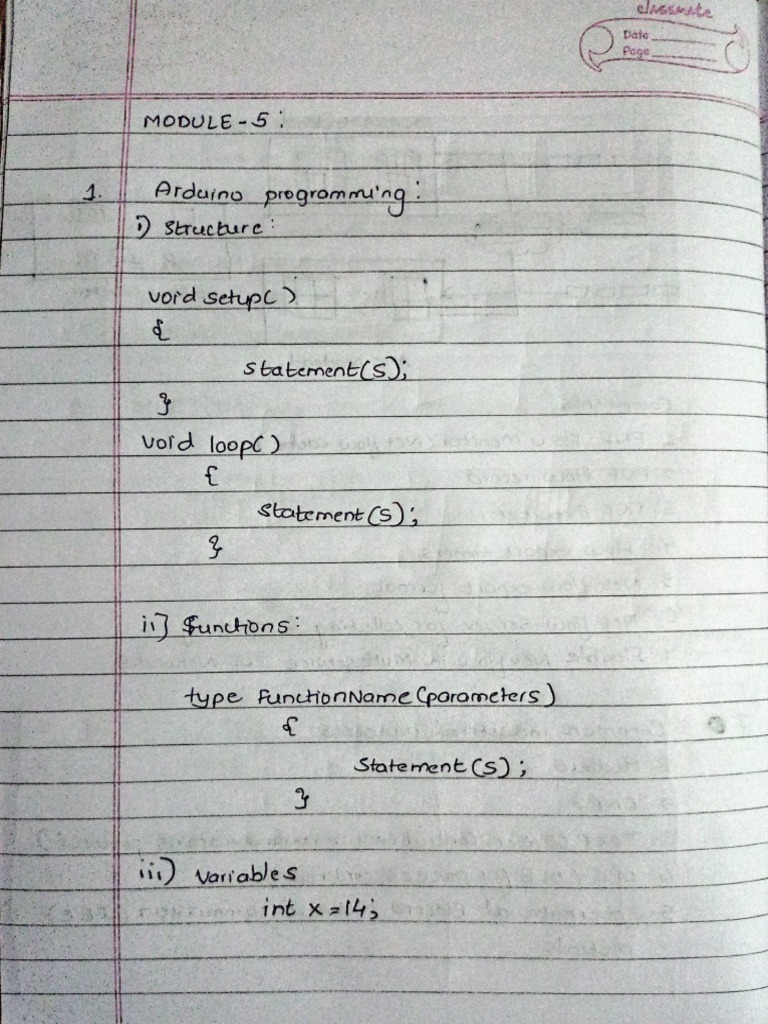 classmate
Date
Page
MODULE-5:
1. Arduino programming:
i) structure:
void setup()
{
statement(s);
}
void loop()
{
statement(s);
}
ii] functions:
type FunctionName(parameters)
{
Statement(s);
}
iii) variables
int x=14;